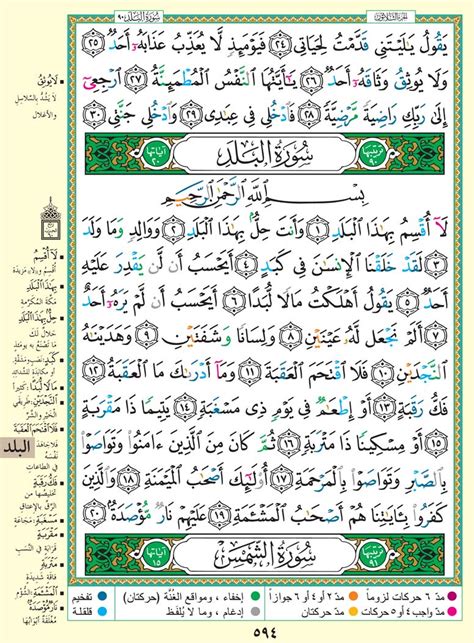 سُورَةُ البَلَدِ ٩٠
الجزء الثلاثون
يَقُولُ يَٰلَيْتَنِى قَدَّمْتُ لِحَيَاتِى ﴿٢٤﴾ فَيَوْمَئِذٍ لَّا يُعَذِّبُ عَذَابَهُۥٓ أَحَدٌ ﴿٢٥﴾
وَلَا يُوثِقُ وَثَاقَهُۥٓ أَحَدٌ ﴿٢٦﴾ يَٰٓأَيَّتُهَا ٱلنَّفْسُ ٱلْمُطْمَئِنَّةُ ﴿٢٧﴾ ٱرْجِعِىٓ
إِلَىٰ رَبِّكِ رَاضِيَةً مَّرْضِيَّةً ﴿٢٨﴾ فَٱدْخُلِى فِى عِبَٰدِى ﴿٢٩﴾ وَٱدْخُلِى جَنَّتِى ﴿٣٠﴾
ترتيبها ٩٠
سُورَةُ البَلَدِ
آياتها ٢٠
بِسْمِ ٱللَّهِ ٱلرَّحْمَٰنِ ٱلرَّحِيمِ
لَآ أُقْسِمُ بِهَٰذَا ٱلْبَلَدِ ﴿١﴾ وَأَنتَ حِلٌّۢ بِهَٰذَا ٱلْبَلَدِ ﴿٢﴾ وَوَالِدٍ وَمَا وَلَدَ
﴿٣﴾ لَقَدْ خَلَقْنَا ٱلْإِنسَٰنَ فِى كَبَدٍ ﴿٤﴾ أَيَحْسَبُ أَن لَّن يَقْدِرَ عَلَيْهِ
أَحَدٌ ﴿٥﴾ يَقُولُ أَهْلَكْتُ مَالًا لُّبَدًا ﴿٦﴾ أَيَحْسَبُ أَن لَّمْ يَرَهُۥٓ أَحَدٌ
﴿٧﴾ أَلَمْ نَجْعَل لَّهُۥ عَيْنَيْنِ ﴿٨﴾ وَلِسَانًا وَشَفَتَيْنِ ﴿٩﴾ وَهَدَيْنَٰهُ
ٱلنَّجْدَيْنِ ﴿١٠﴾ فَلَا ٱقْتَحَمَ ٱلْعَقَبَةَ ﴿١١﴾ وَمَآ أَدْرَىٰكَ مَا ٱلْعَقَبَةُ ﴿١٢﴾
فَكُّ رَقَبَةٍ ﴿١٣﴾ أَوْ إِطْعَٰمٌ فِى يَوْمٍ ذِى مَسْغَبَةٍ ﴿١٤﴾ يَتِيمًا ذَا مَقْرَبَةٍ
﴿١٥﴾ أَوْ مِسْكِينًا ذَا مَتْرَبَةٍ ﴿١٦﴾ ثُمَّ كَانَ مِنَ ٱلَّذِينَ ءَامَنُوا۟ وَتَوَاصَوْا۟
بِٱلصَّبْرِ وَتَوَاصَوْا۟ بِٱلْمَرْحَمَةِ ﴿١٧﴾ أُو۟لَٰٓئِكَ أَصْحَٰبُ ٱلْمَيْمَنَةِ ﴿١٨﴾ وَٱلَّذِينَ
كَفَرُوا۟ بِـَٔايَٰتِنَا هُمْ أَصْحَٰبُ ٱلْمَشْـَٔمَةِ ﴿١٩﴾ عَلَيْهِمْ نَارٌ مُّؤْصَدَةٌۢ ﴿٢٠﴾
ترتيبها ٩١
سُورَةُ الشَّمْسِ
آياتها ١٥
لَا يُوثِقُ
لا يَشُدُّ بالسَّلاسِل
والأغلال
لَا أُقْسِمُ
أُقْسِمُ و«لا» مَزيدة
بِهَذَا البَلَدِ
مَكَّة المُكَرَّمة
حِلٌّ بِهَذَا البَلَدِ
حَلالٌ لك
ما تَصْنَعُ به يومئذ
كَبَدٍ
مَالًا لُبَدًا
كثيراً
النَّجْدَيْنِ
طريقَي
الخير والشَّرِّ
اقْتَحَمَ العَقَبَةَ
نفسَه
في الطاعات
فَكُّ رَقَبَةٍ
تخليصُها من
الرِّقِّ بالإعتاق
مَسْغَبَةٍ
مجاعة
مَقْرَبَةٍ
قرابة في النَّسَب
مَتْرَبَةٍ
فاقة شديدة
المَشْأَمَةِ
الشُّؤْم
نَارٌ مُؤْصَدَةٌ
مُغْلَقَةٌ أبوابُها
البلد
مدّ ٦ حركات لزوماً
مدّ ٢ أو ٤ أو ٦ جوازاً
إخفاء، ومواقع الغُنَّة (حركتان)
تفخيم
مدّ واجب ٤ أو ٥ حركات
مدّ حركتان
إدغام، وما لا يُلفَظ
قلقلة
٥٩٤